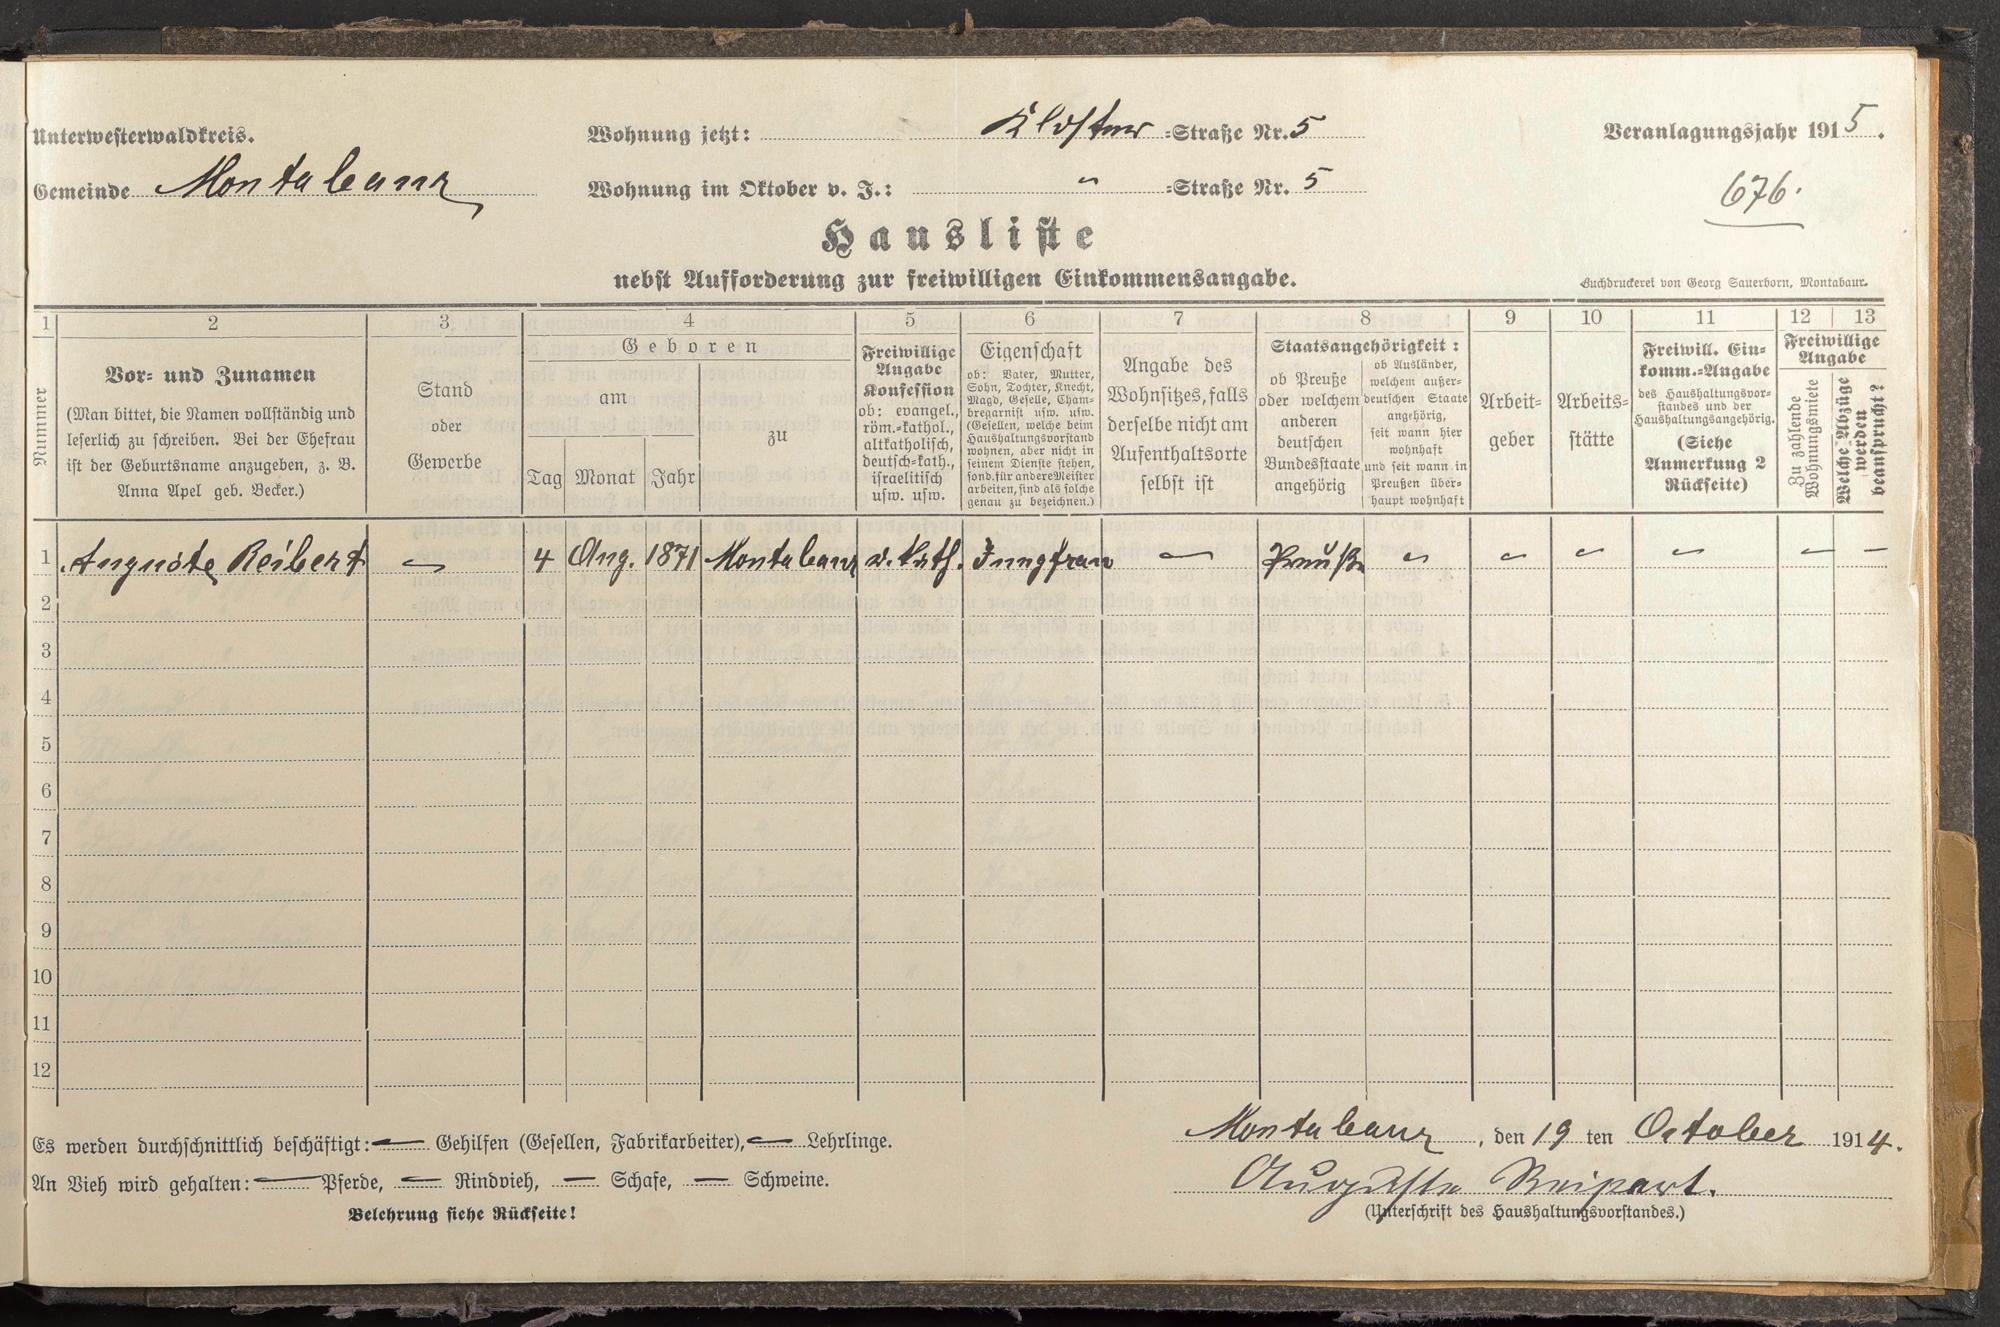 Unterwesterwaldkreis.
Wohnung jetzt: Kloster =Straße Nr. 5
Veranlagungsjahr 1915.
Gemeinde Montabaur
Wohnung im Oktober v. J.: " =Straße Nr. 5
676.
Hausliste
nebst Aufforderung zur freiwilligen Einkommensangabe.
Buchdruckerei von Georg Sauerborn, Montabaur.
1 2 3 4 5 6 7 8 9 10 11 12 13
Nummer
Vor- und Zunamen
(Man bittet, die Namen vollständig und
leserlich zu schreiben. Bei der Ehefrau
ist der Geburtsname anzugeben, z. B.
Anna Apel geb. Becker.)
Stand
oder
Gewerbe
Geboren
am
Tag Monat Jahr
zu
Freiwillige
Angabe
Konfession
ob: evangel.,
röm.-kathol.,
altkatholisch,
deutsch-kath.,
israelitisch
usw. usw.
Eigenschaft
ob: Vater, Mutter,
Sohn, Tochter, Knecht,
Magd, Geselle, Cham-
bregarnist usw. usw.
(Gesellen, welche beim
Haushaltungsvorstand
wohnen, aber nicht in
seinem Dienste stehen,
sond. für andere Meister
arbeiten, sind als solche
genau zu bezeichnen.)
Angabe des
Wohnsitzes, falls
derselbe nicht am
Aufenthaltsorte
selbst ist
Staatsangehörigkeit:
ob Preuße
oder welchem
anderen
deutschen
Bundesstaate
angehörig
ob Ausländer,
welchem außer-
deutschen Staate
angehörig,
seit wann hier
wohnhaft
und seit wann in
Preußen über-
haupt wohnhaft
Arbeit-
geber
Arbeits-
stätte
Freiwill. Ein-
komm.-Angabe
des Haushaltungsvor-
standes und der
Haushaltungsangehörig.
(Siehe
Anmerkung 2
Rückseite)
Freiwillige
Angabe
Zu zahlende
Wohnungsmiete
Welche Abzüge
werden
beansprucht?
1 Auguste Reibert — 4 Aug. 1871 Montabaur r. kath. Jungfrau — Preuße — — — — — —
2
3
4
5
6
7
8
9
10
11
12
Es werden durchschnittlich beschäftigt: — Gehilfen (Gesellen, Fabrikarbeiter), — Lehrlinge.
An Vieh wird gehalten: — Pferde, — Rindvieh, — Schafe, — Schweine.
Belehrung siehe Rückseite!
Montabaur, den 19 ten October 1914.
Auguste Reipart.
(Unterschrift des Haushaltungsvorstandes.)